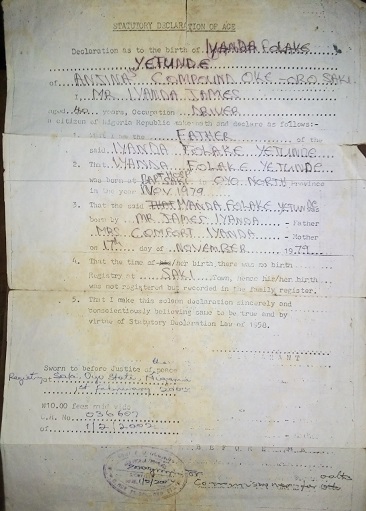 STATUTORY DECLARATION OF AGE
Declaration as to the birth of IYANDA FOLAKE
YETUNDE
of ANSINA COMPOUND OKE-ORO SAKI
I MR IYANDA JAMES
aged years, Occupation DRIVER
a citizen of Nigeria Republic make oath and declare as follows:-
FATHER of the
said IYANDA FOLAKE YETUNDE
2. That IYANDA FOLAKE YETUNDE
was born at in OYO NORTH Province
in the year NOV. 1979
3. That the said IYANDA FOLAKE YETUNDE was
born by MR JAMES IYANDA - Father
MRS COMFORT IYANDA - Mother
on 17th day of NOVEMBER 1979
4. That the time of his/her birth there was no birth
Registry at SAKI Town, hence his/her birth
was not registered but recorded in the family register.
5. That I make this solemn declaration sincerely and
conscientiously believing same to be true and by
virtue of Statutory Declaration Law of 1958.
Sworn to before Justice of peace the
Registry Saki Oyo State, Nigeria
1st February 2002
N10.00 fees paid vide
C.R. No. 036607
of 1/2/2002
BEFORE ME
Commissioner for Oaths